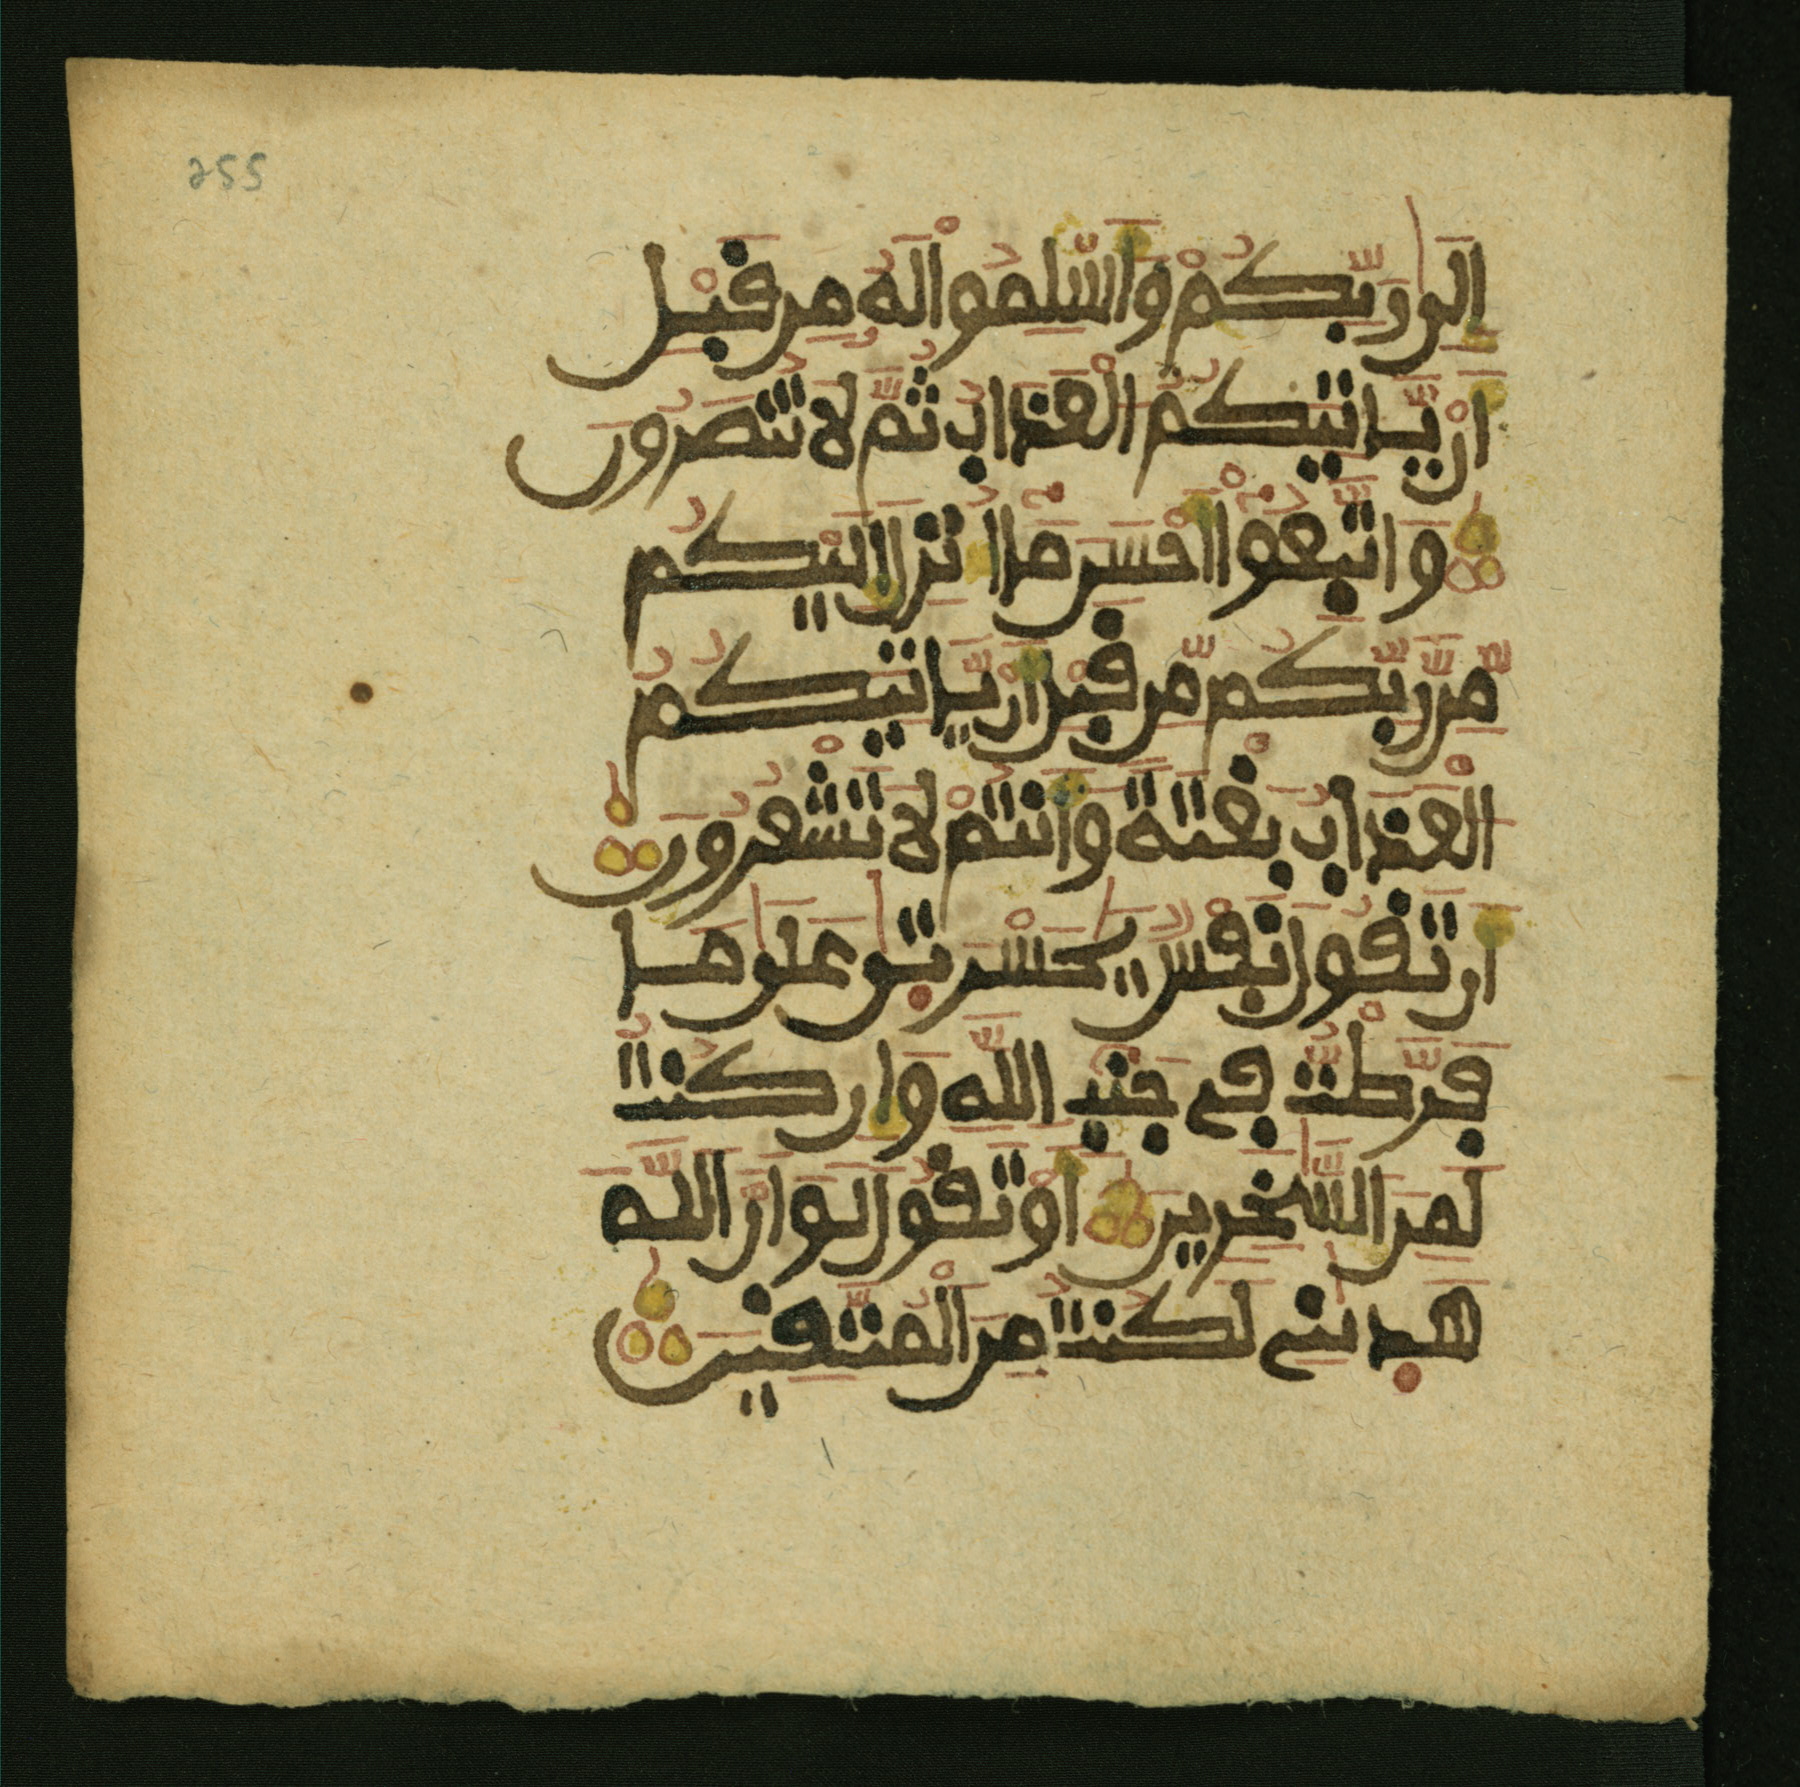 255
إِلَىٰ رَبِّكُمْ وَأَسْلِمُوا لَهُ مِن قَبْلِ
أَن يَّاتِيَكُمُ الْعَذَابُ ثُمَّ لَا تُنصَرُونَ
وَاتَّبِعُوا أَحْسَنَ مَا أُنزِلَ إِلَيْكُم
مِّن رَّبِّكُم مِّن قَبْلِ أَن يَّاتِيَكُمُ
الْعَذَابُ بَغْتَةً وَأَنتُمْ لَا تَشْعُرُونَ
أَن تَقُولَ نَفْسٌ يَٰحَسْرَتَىٰ عَلَىٰ مَا
فَرَّطتُ فِي جَنبِ اللَّهِ وَإِن كُنتُ
لَمِنَ السَّٰخِرِينَ أَوْ تَقُولَ لَوْ أَنَّ اللَّهَ
هَدَىٰنِي لَكُنتُ مِنَ الْمُتَّقِينَ